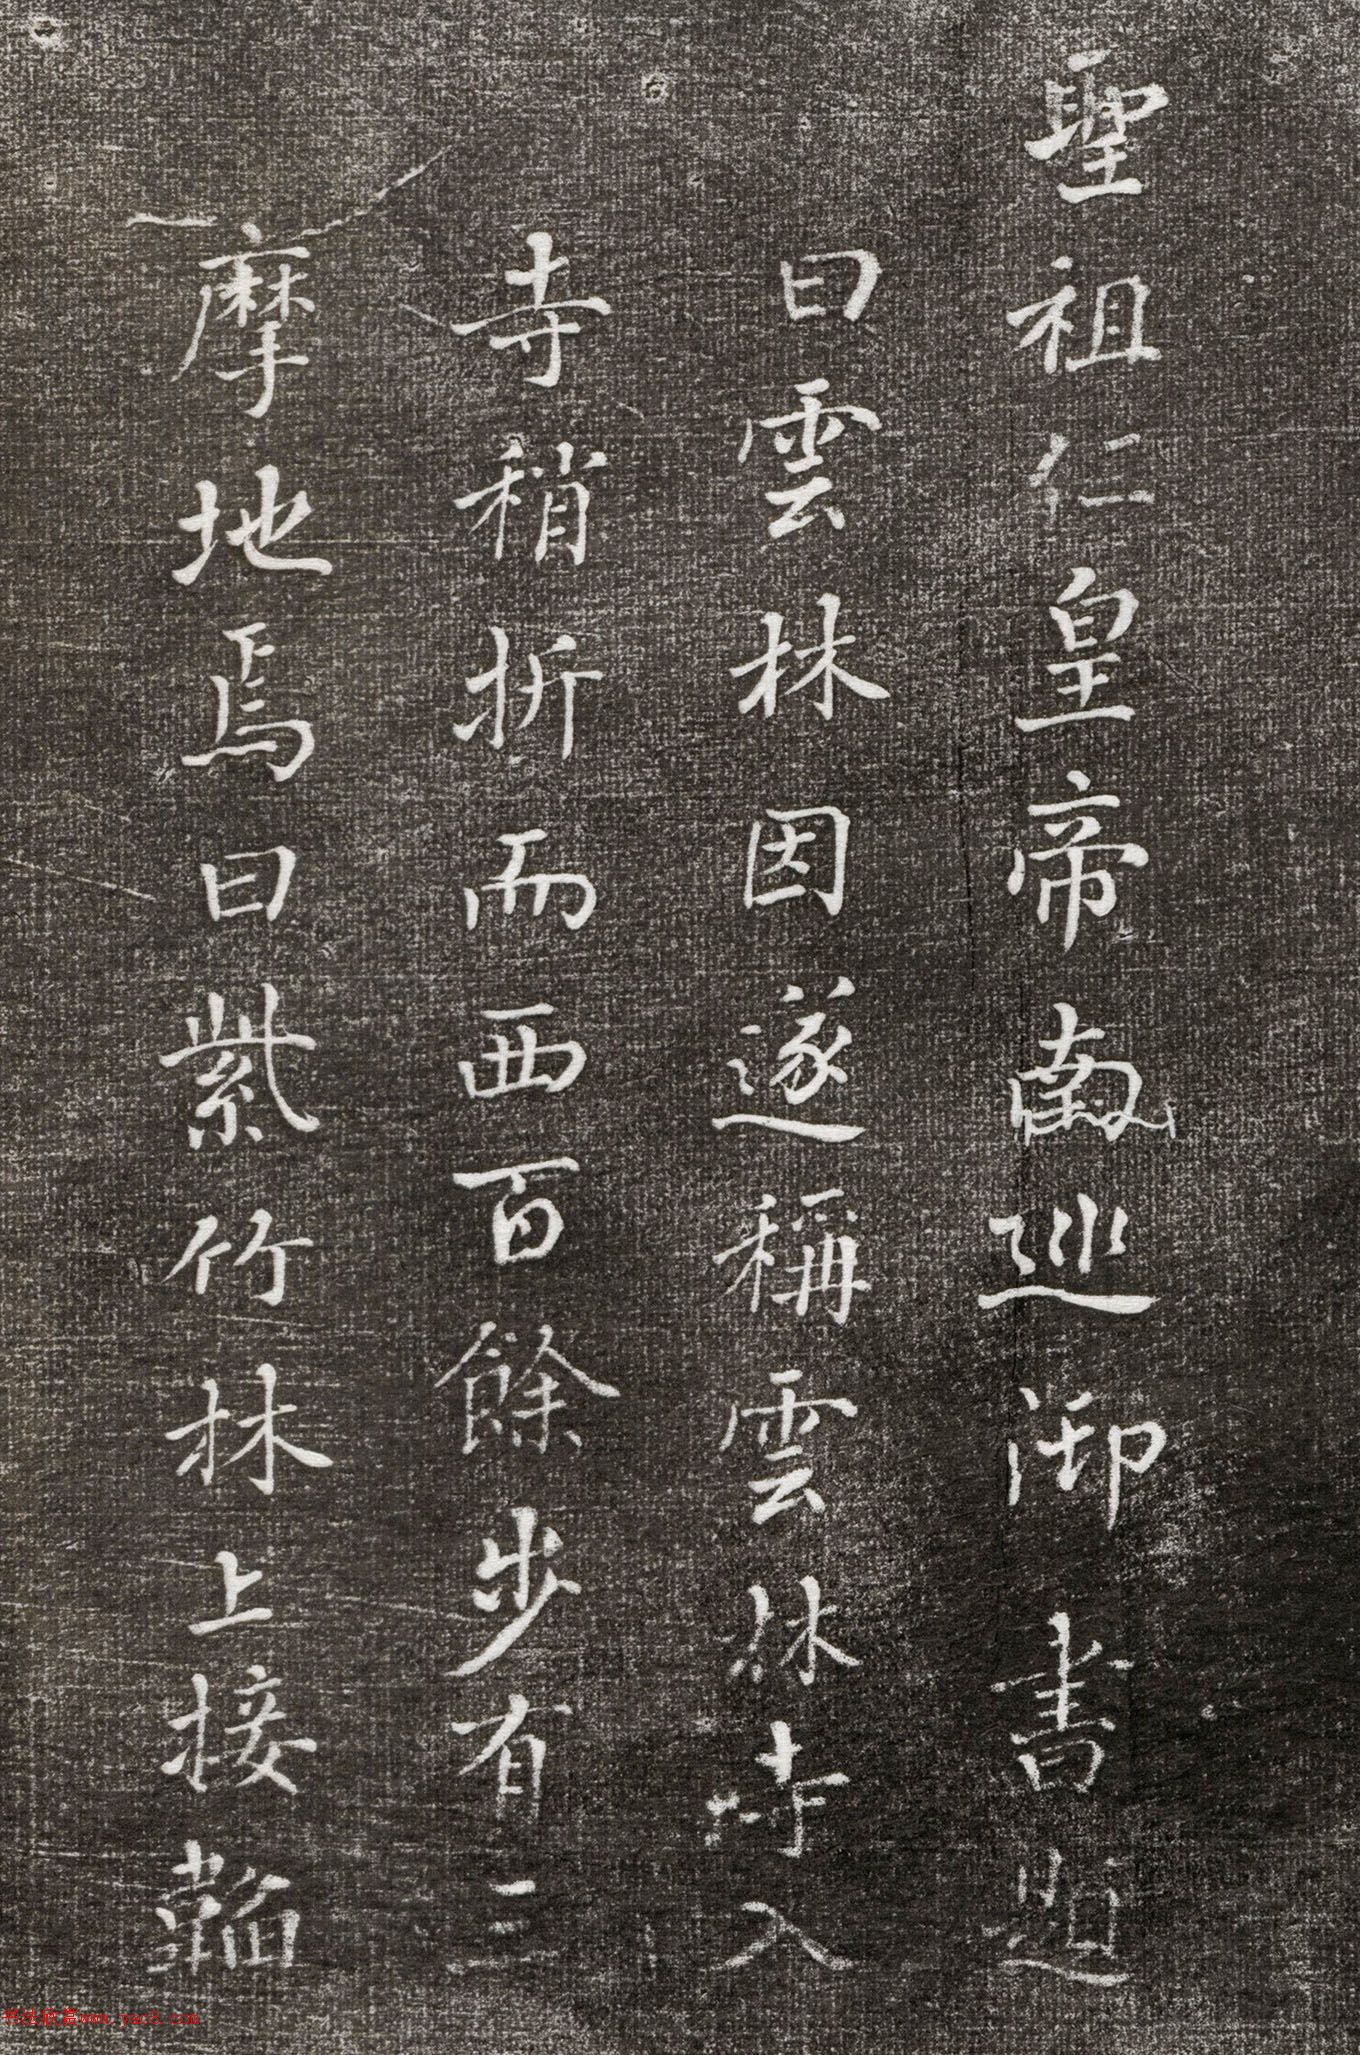 聖祖仁皇帝南巡御書題
曰雲林因遂稱雲林寺入
寺稍折而西百餘步有三
摩地焉曰紫竹林上接韜
书法欣赏www.yac8.com